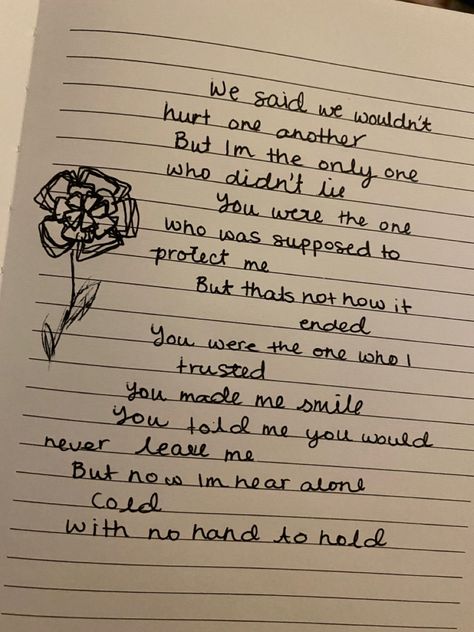 We said we wouldn't
hurt one another
But Im the only one
who didn't lie
You were the one
who was supposed to
protect me
But thats not how it
ended
You were the one who I
trusted
You made me smile
You told me you would
never leave me
But now Im hear alone
Cold
With no hand to hold